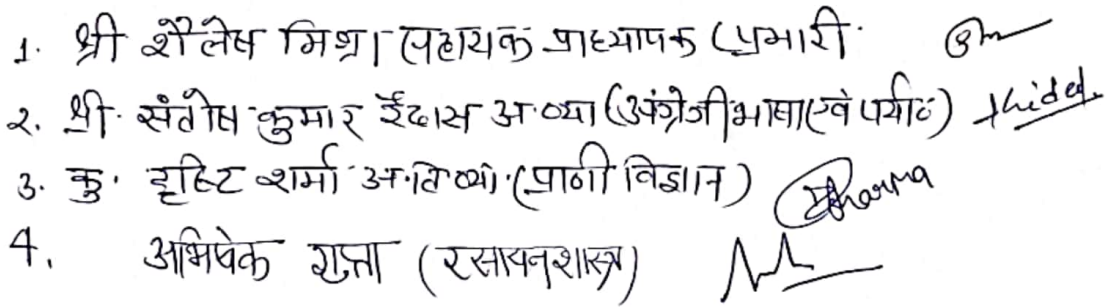 1. श्री शैलेष मिश्रा सहायक प्राध्यापक (प्रभारी
2. श्री. संतोष कुमार ईदास अ.व्या (अंग्रेजी भाषा एवं पर्या०)
3. कु. दृष्टि शर्मा अ.ति.व्या. (प्राणी विज्ञान) Sharma
4. अभिषेक गुप्ता (रसायनशास्त्र)